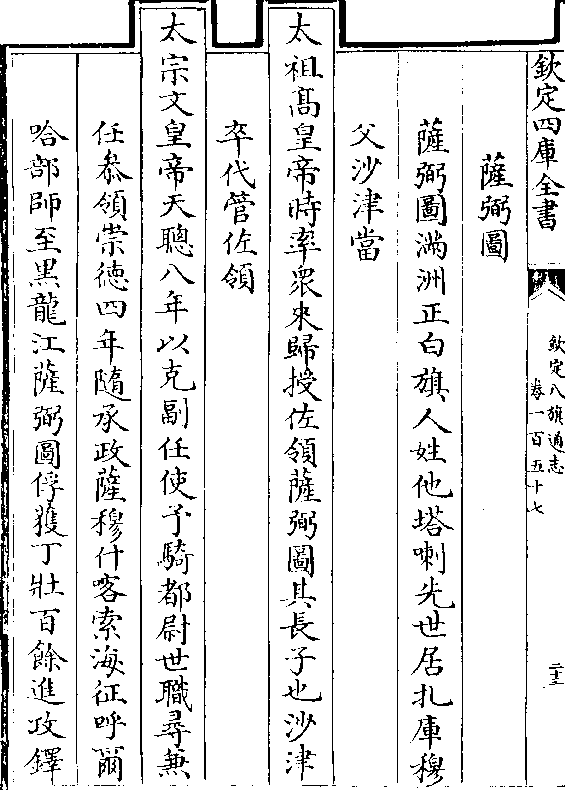 欽定四庫全書
欽定八旗通志
卷一百五十七
二十三
薩弼圖
薩弼圖滿洲正白旗人姓他塔喇先世居扎庫穆
父沙津當
太祖高皇帝時率衆來歸授佐領薩弼圖其長子也沙津
卒代管佐領
太宗文皇帝天聰八年以克副任使予騎都尉世職尋兼
任叅領崇德四年隨承政薩穆什喀索海征呼爾
哈部師至黑龍江薩弼圖俘獲丁壯百餘進攻鐸